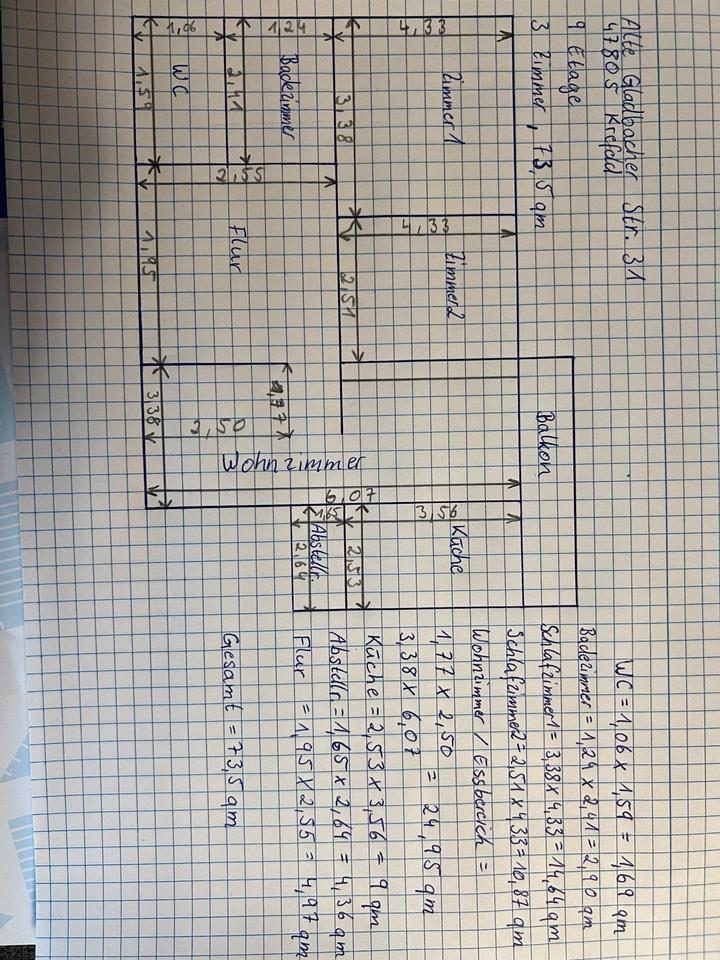 Alte Gladbacher Str. 31
47805 Krefeld
9 Etage
3 Zimmer, 73,5 qm
4,33
Zimmer1
3,38
4,33
Zimmer2
2,51
Balkon
1,24
Badezimmer
2,41
1,06
WC
1,59
2,55
Flur
1,95
1,77
2,50
3,38
Wohnzimmer
6,07
3,56
Küche
2,53
1,65
Abstellr.
2,64
WC = 1,06 x 1,59 = 1,69 qm
Badezimmer = 1,24 x 2,41 = 2,90 qm
Schlafzimmer1 = 3,38 x 4,33 = 14,64 qm
Schlafzimmer2 = 2,51 x 4,33 = 10,87 qm
Wohnzimmer / Essbereich =
1,77 x 2,50
= 24,95 qm
3,38 x 6,07
Küche = 2,53 x 3,56 = 9 qm
Abstellr. = 1,65 x 2,64 = 4,36 qm
Flur = 1,95 x 2,55 = 4,97 qm
Gesamt = 73,5 qm